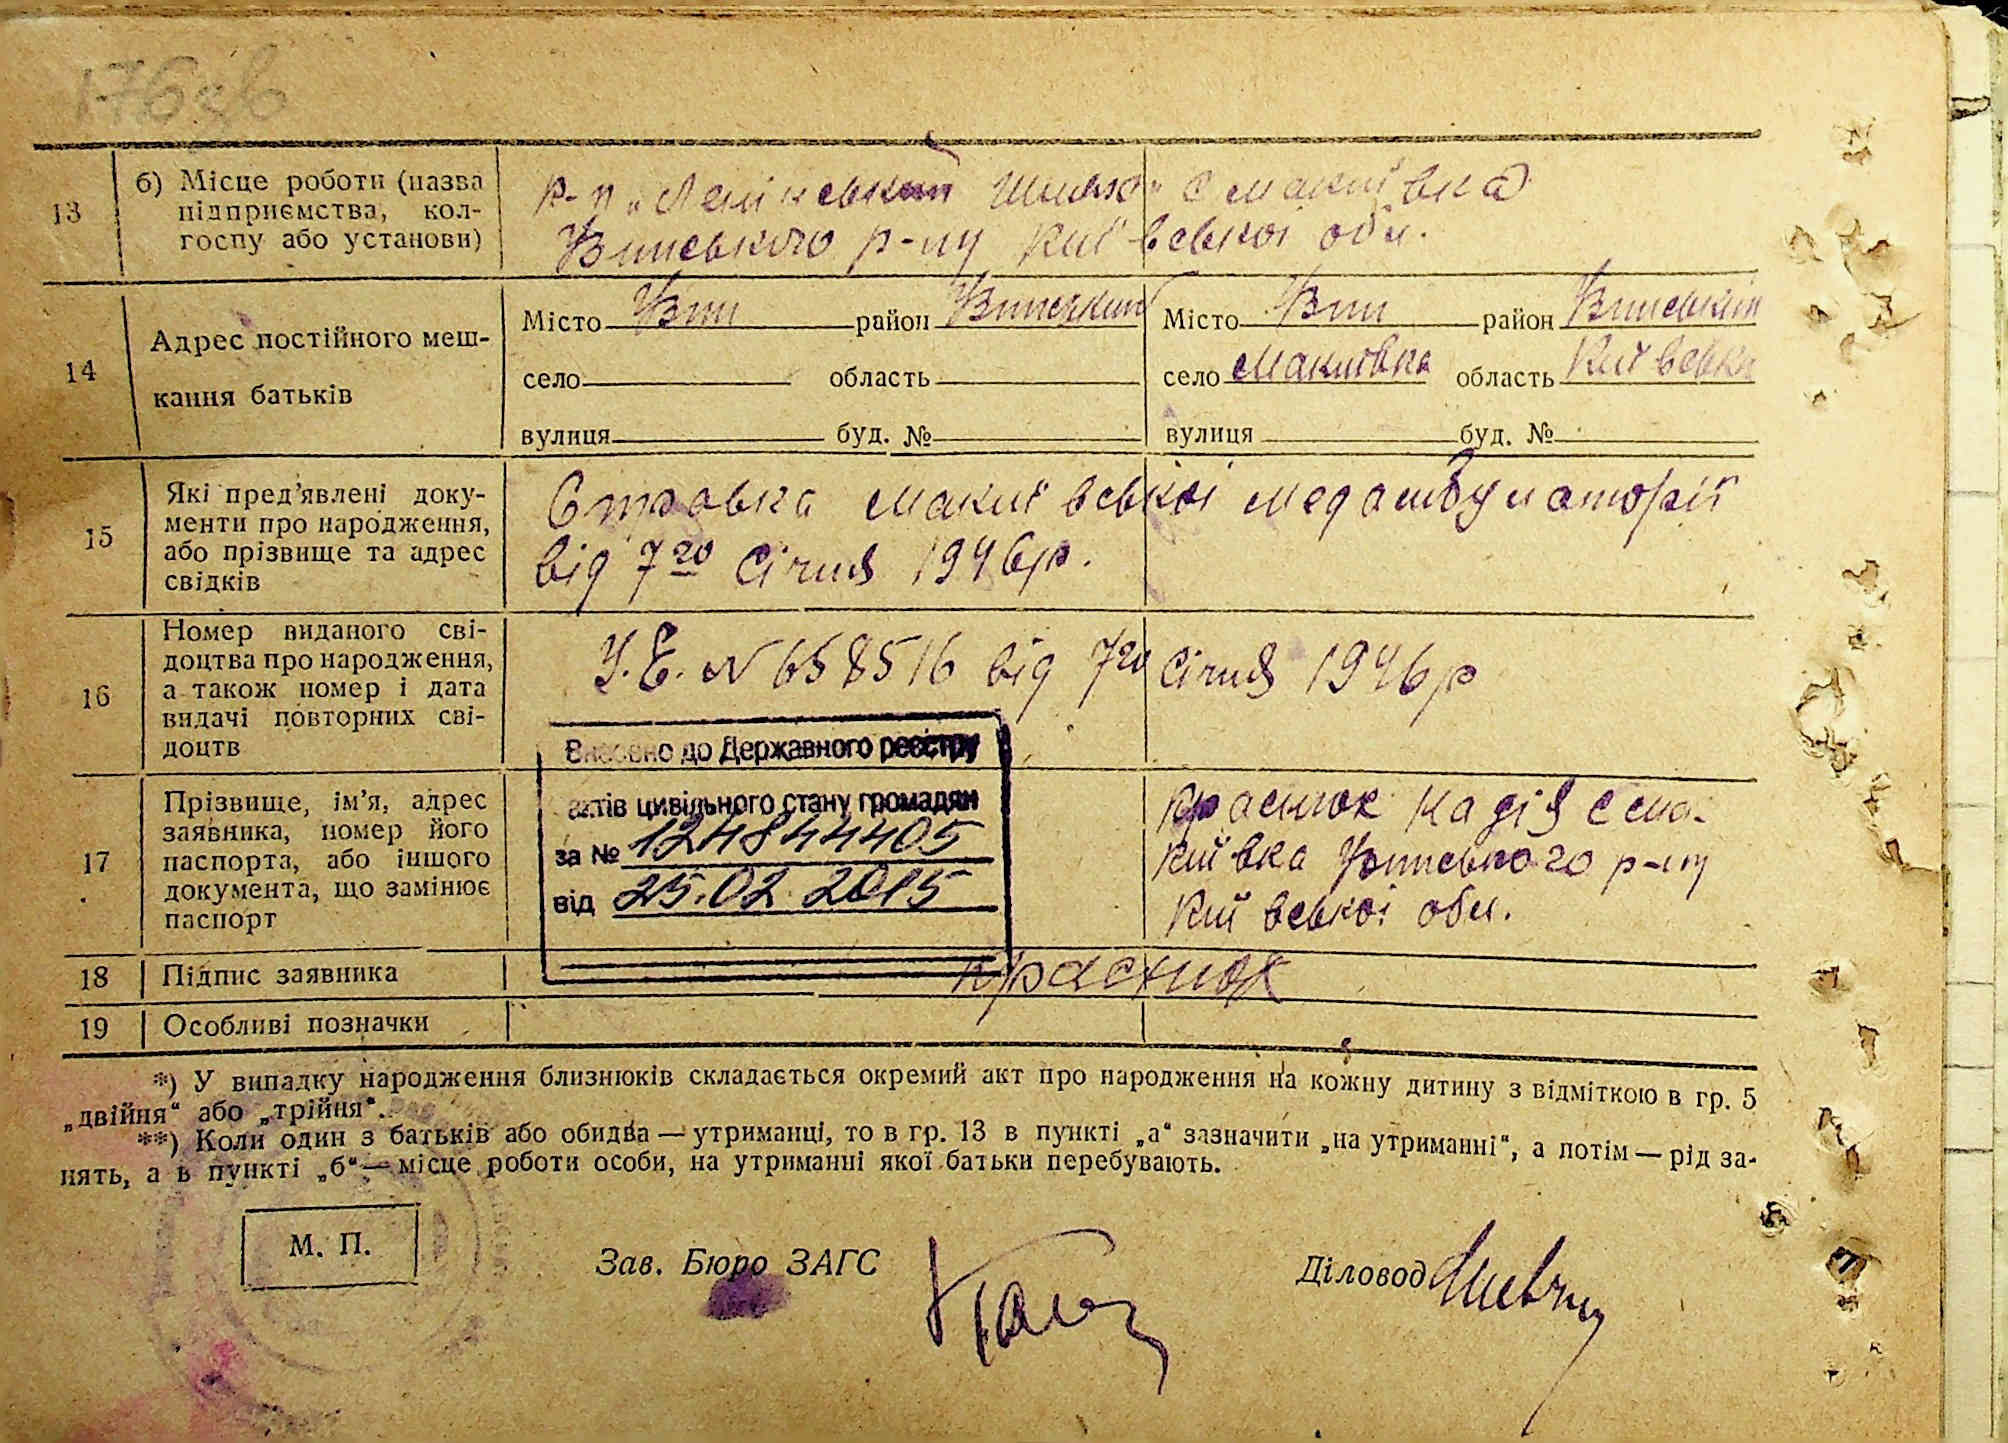 176 зв
13
б) Місце роботи (назва
підприємства, кол-
госпу або установи)
к-п „Ленінський Шлях" с Макиївка
р-ну Київської обл.
14
Адрес постійного меш-
кання батьків
Місто район
село область
вулиця буд. №
Місто район
село Макиївка область Київська
вулиця буд. №
15
Які пред'явлені доку-
менти про народження,
або прізвище та адрес
свідків
Справка Макиївської медамбулаторії
від 7го Січня 1946р.
16
Номер виданого сві-
доцтва про народження,
а також номер і дата
видачі повторних сві-
доцтв
У.Е. N 658516 від 7го Січня 1946р
Внесено до Державного реєстру
актів цивільного стану громадян
за № 124844405
від 25.02.2015
17
Прізвище, ім'я, адрес
заявника, номер його
паспорта, або іншого
документа, що замінює
паспорт
Краснюк Надія с Ма-
київка р-ну
Київської обл.
18
Підпис заявника
Краснюк
19
Особливі позначки
*) У випадку народження близнюків складається окремий акт про народження на кожну дитину з відміткою в гр. 5
„двійня" або „трійня".
**) Коли один з батьків або обидва — утриманці, то в гр. 13 в пункті „а" зазначити „на утриманні", а потім — рід за-
нять, а в пункті „б" — місце роботи особи, на утриманні якої батьки перебувають.
М. П.
Зав. Бюро ЗАГС
Діловод